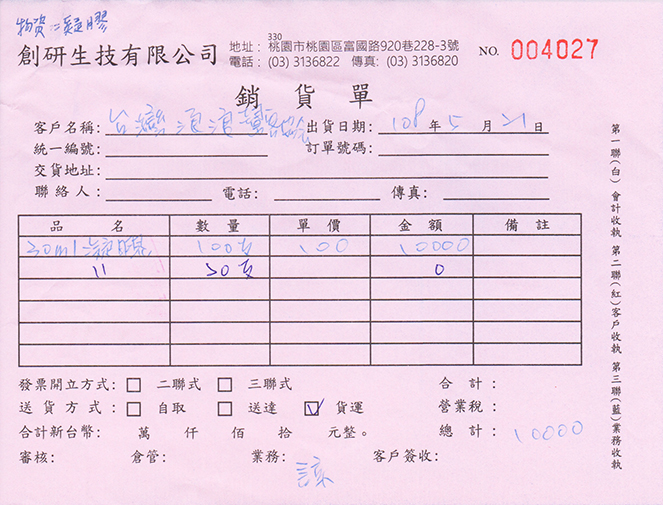 物資:凝膠
創研生技有限公司
330
地址: 桃園市桃園區富國路920巷228-3號
電話: (03) 3136822 傳真: (03) 3136820
NO. 004027
銷貨單
客戶名稱: 台灣浪浪 出貨日期: 108 年 5 月 21 日
統一編號: 訂單號碼:
交貨地址:
聯絡人: 電話: 傳真:
品名 數量 單價 金額 備註
30ml 凝膠 100支 100 10000
〃 30支 0
發票開立方式: □ 二聯式 □ 三聯式 合計:
送貨方式: □ 自取 □ 送達 ☑ 貨運 營業稅:
合計新台幣: 萬 仟 佰 拾 元整。 總計: 10000
審核: 倉管: 業務: 客戶簽收:
第一聯(白)會計收執 第二聯(紅)客戶收執 第三聯(藍)業務收執